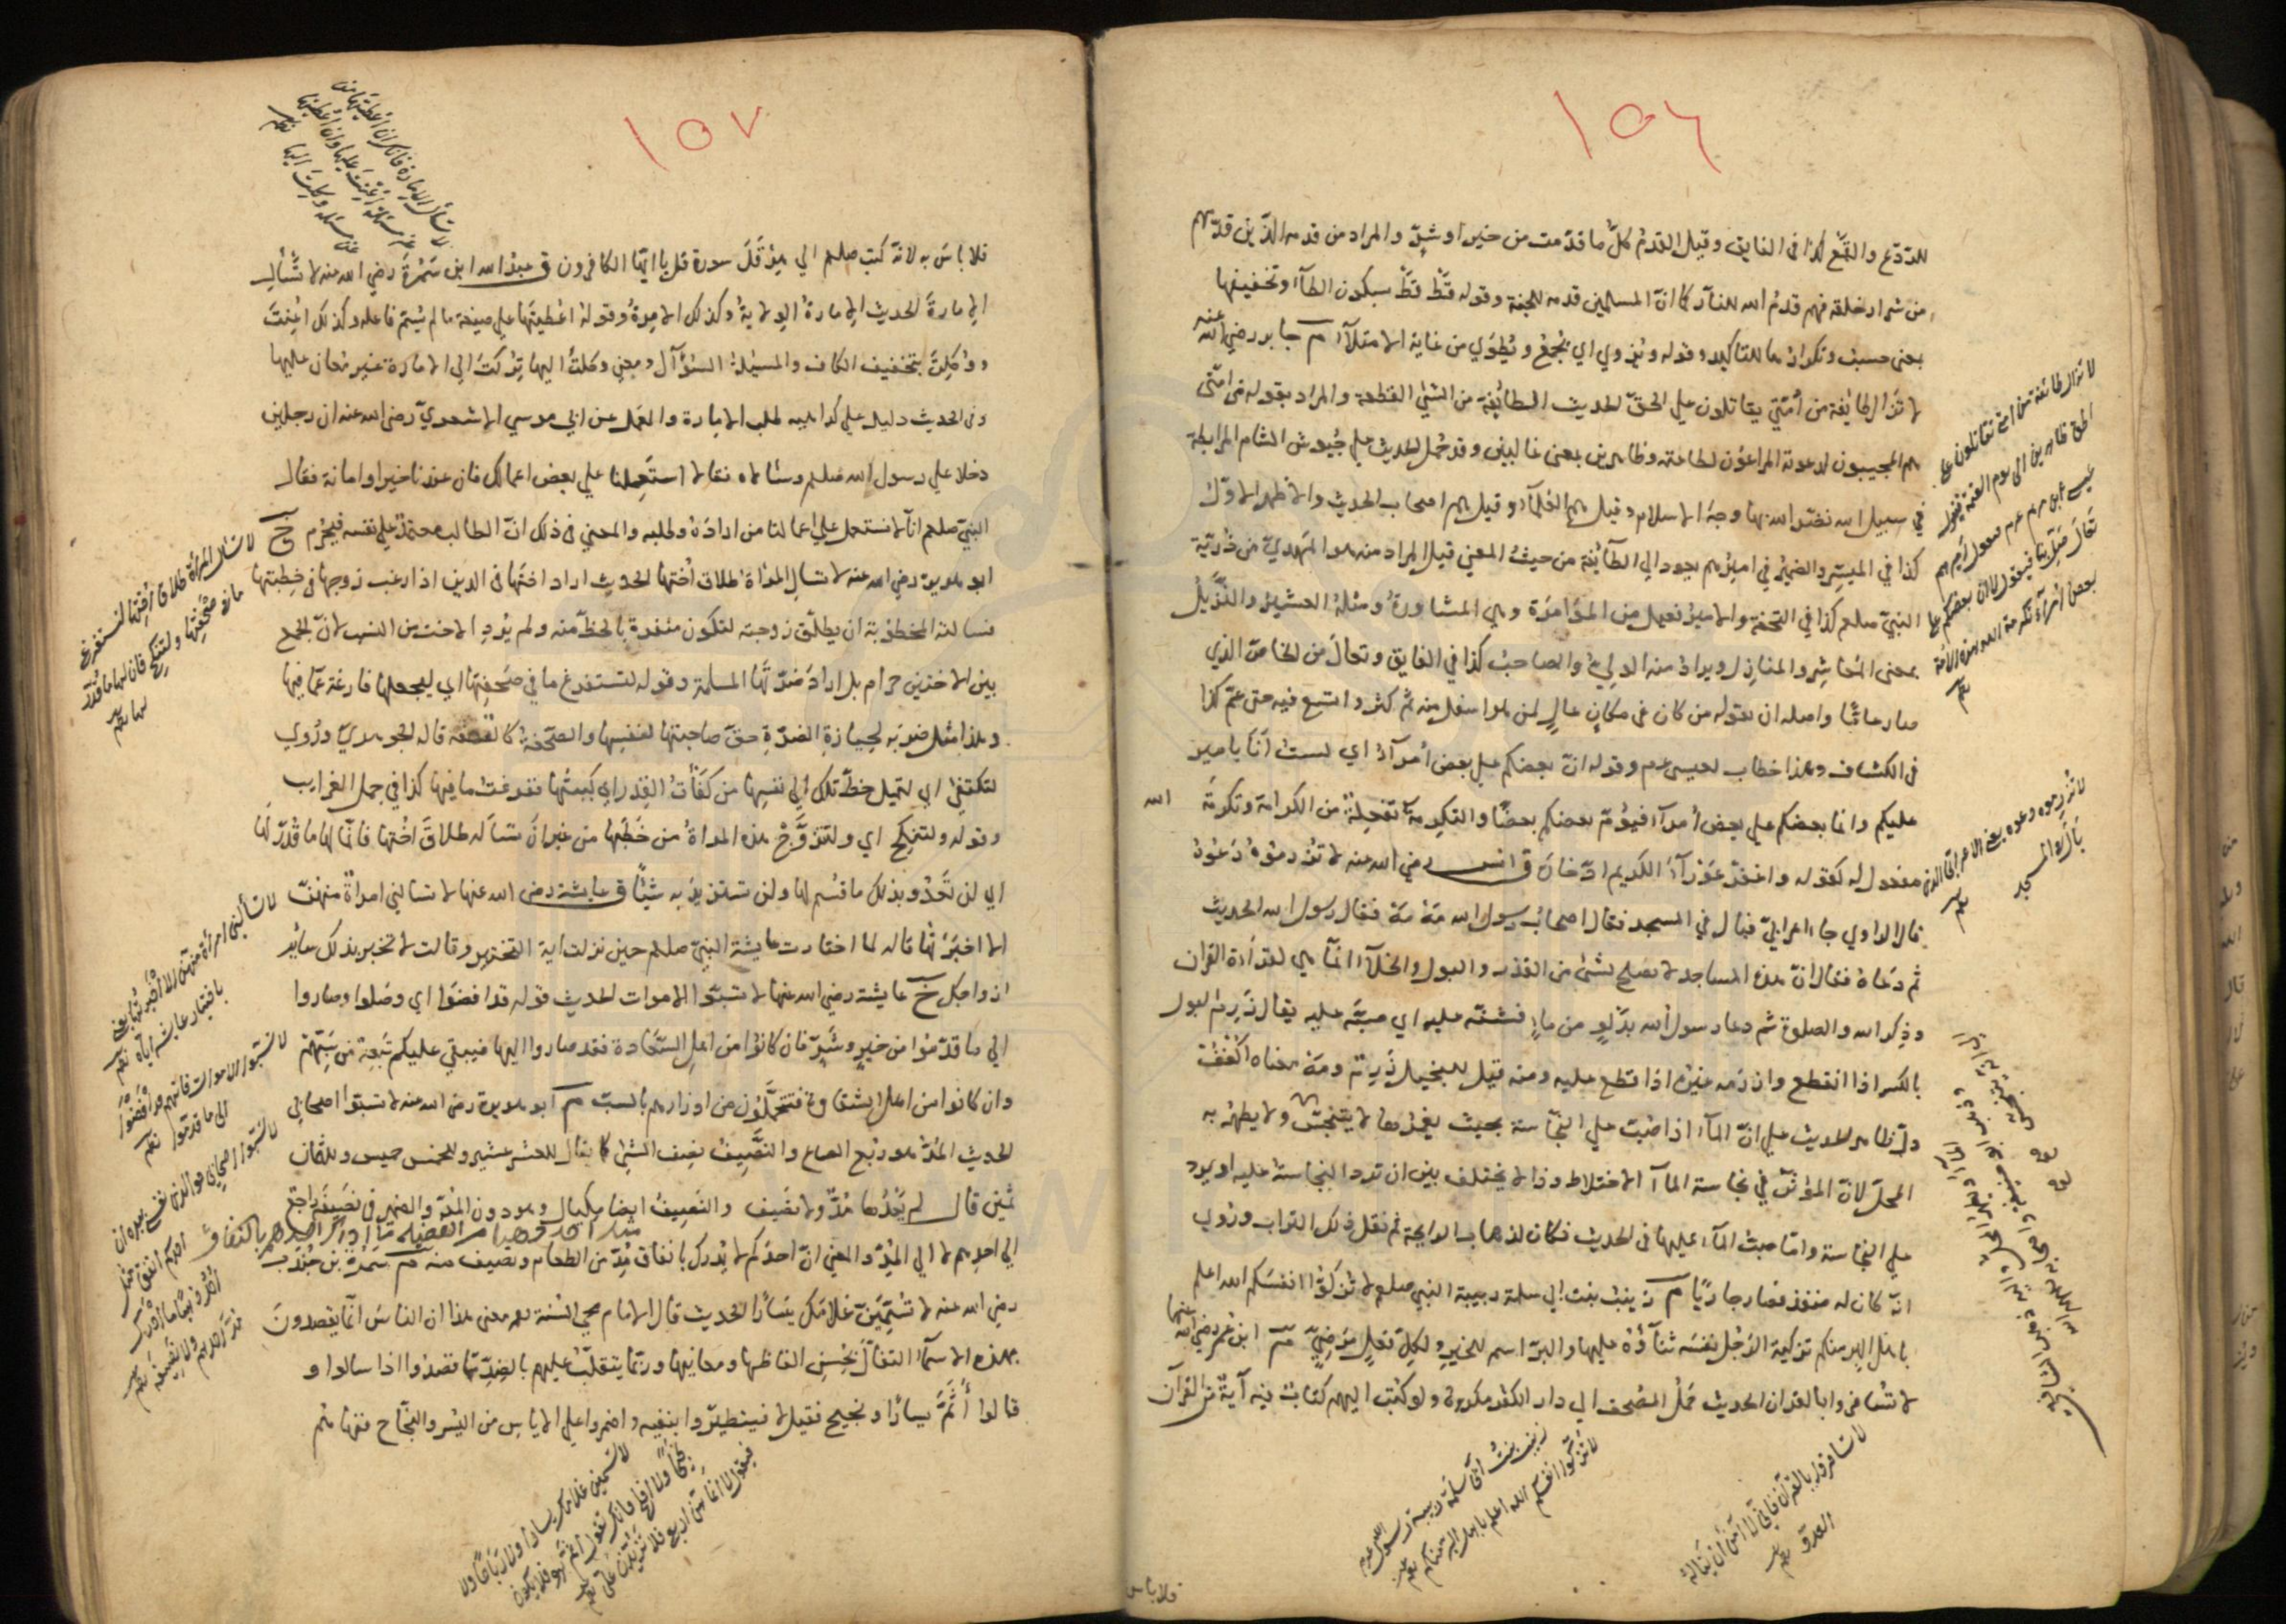 ١٥٦
للتردّع والقمع كذا في الفايق وقيل القدم كلّ ما قدّمت من خير او شرّ والمراد من قدمه الذين قدّمهم
من شرار خلقه فهم قدم الله للنار كما انّ المسلمين قدمه للجنة وقوله قَطْ قَطْ بسكون الطآء وتخفيفها
بمعنى حسب وتكرارها للتاكيد وقوله ويزوي اي يُجمَع ويُطوَي من غاية الامتلآء م جابر رضي الله عنه
لا تزال طائفة من أمّتي يقاتلون علي الحقّ الحديث الطائفة من الشئ القطعة والمراد بقوله من امّتي
هم المجيبون لدعوته المراعون لطاعته وظاهرين بمعنى غالبين وقد حُمل الحديث علي جُيوش الشام المرابطة
في سبيل الله نضّر الله بها وجه الاسلام وقيل هم العُلمآء وقيل هم اصحاب الحديث والاظهر الاوّل
كذا في الميسّر والضمير في اميرهم يعود الي الطآئفة من حيث المعني قيل المراد منه هو المهديّ من ذُرّية
النبيّ صلعم كذا في التحفة والامير فعيل من المؤامرة وهي المشاورة ومثله العشير والنزيل
بمعنى المُعاشِر والمنازل ويراد منه الوليّ والصاحب كذا في الفايق وتعالَ من الخاصّ الذي
صار عامّا واصله ان يقوله من كان في مكان عالٍ لمن هو اسفل منه ثم كثر واتسع فيه حتى عمّ كذا
في الكشاف وهذا خطاب لعيسى عم وقوله انّ بعضكم علي بعض أمرآء اي لست أنا بامير
عليكم وانما بعضكم علي بعض أمرآء فيؤمّ بعضكم بعضًا والتكرمة تفعلة من الكرامة وتكرمة الله
مفعول له كقوله واغفر عورآء الكريم ادّخاره ق انس رضي الله عنه لا تزرموه دَعُوه
قال الراوي جاء اعرابيّ فبال في المسجد فقال اصحاب رسول الله مَهْ مَهْ فقال رسول الله الحديث
ثم دعاه فقال انّ هذه المساجد لا تصلح لشئ من القذر والبول والخلآء انمّا هي لقراءة القران
وذِكر الله والصلوة ثم دعا رسول الله بدَلوٍ من ماءٍ فشنّه عليه اي صبّه عليه يقال زَرِم البول
بالكسر اذا انقطع وازرمه غيره اذا قطع عليه ومنه قيل للبخيل زَرِمٌ ومَهْ معناه اكْفُفْ
دلّ ظاهر الحديث علي انّ المآء اذا صُبّ علي النجاسة بحيث يغمرها لا يتنجّس ولا يطهر به
المحلّ لانّ المؤثر في نجاسة المآء الاختلاط وذا لا يختلف بين ان ترد النجاسة عليه او يرد
علي النجاسة وامّا صبّ المآء عليها في الحديث فكان لذهاب الرايحة ثم نقل ذلك التراب ورُوي
انّه كان له منفذ فصار جاريًا م زينب بنت ابي سلمة ربيبة النبي صلعم لا تزكّوا انفسكم الله اعلم
باهل البر منكم تزكية الرجل نفسه ثنآؤه عليها والبرّ اسم للخير ولكلّ فعل مَرضيّ م ابن عمر رضي الله عنهما
لا تُسافروا بالقران الحديث حَملُ المصحف الي دار الكفر مكروه ولو كُتب اليهم كتابٌ فيه آية من القرآن
لا تزال طائفة من امتي تقاتلون على
الحق ظاهرين الى يوم القيمة فينزل
عيسى ابن مريم عم فيقول اميرهم
تعالَ صلِّ بنا فيقول لا انّ بعضكم على
بعض أمرآء تكرمة الله هذه الأمّة
لا تزرموه دعوه يعني الاعرابي الذي
بال في المسجد
زينب بنت ابي سلمة ربيبة رسول الله عم
لا تزكّوا انفسكم الله اعلم باهل البر منكم
لا تسافروا بالقرآن فاني لا آمن أن يناله
العدوّ
فلا باس
١٥٧
فلا باسَ به لانّه كتب صلعم الي هِرَقْلَ سورة قل يا ايّها الكافرون ق عبد الله ابن سَمُرة رضي الله عنه لا تَسْأل
الامارةَ الحديث الامارةُ الولايةُ وكذلك الامرة وقوله اعطيتها علي صيغة ما لم يُسَمّ فاعله وكذلك اُعِنْتَ
ووُكِلتَ بتخفيف الكاف والمسئلة السؤآل ومعني وكلتَ اليها تُركتَ الي الامارة غير مُعان عليها
وفي الحديث دليل علي كراهية طلب الامارة والعمل عن ابي موسي الاشعري رضي الله عنه ان رجلين
دخلا علي رسول الله صلعم وسئلاه فقالا استعملنا علي بعض اعمالك فان عندنا خيرا وامانة فقال
النبيّ صلعم انّا لا نستعمل علي اعمالنا من ارادَهُ وطلبه والمعني في ذلك انّ الطالب معتمدٌ علي نفسه فيُحرَم خ
ابو هريرة رضي الله عنه لا تسال المرأة طلاق اُختها الحديث اراد اختها في الدين اذا رغب زوجها في خِطبتها
فسالته المخطوبة ان يطلّق زوجته لتكون منفردة بالحظّ منه ولم يُرِد الاخت من النسب لانّ الجمع
بين الاختين حرام بل اراد ضَرّتها المسلمة وقوله لتستفرغ ما في صَحفتها اي ليجعلها فارغة عمّا فيها
وهذا مثل ضربه لحِيازة الضرّة حقّ صاحبتها لنفسها والصّحفة كالقصعة قاله الجوهريّ ورُوي
لتكتفئ اي لتميل حظّ تلك الي نفسها من كفأتُ القِدر اي كببتُها ففرغت ما فيها كذا في جمل الغرايب
وقوله ولتنكح اي ولتتزوّج هذه المرأة من خَطَبها من غير ان تسأله طلاق اختها فانّما لها ما قُدّر لها
اي لن تَعْدُو بذلك ما قُسم لها ولن تستزيد به شيئًا ق عايشة رضي الله عنها لا تسالني امراة منهنّ
الا اخبرتها قاله لما اختارت عايشة النبيّ صلعم حين نزلت اية التخيير وقالت لا تخبر بذلك سائر
ازواجك خ عايشة رضي الله عنها لا تسبّوا الاموات الحديث قوله قد افضَوا اي وصلوا وصاروا
الي ما قدّموا من خيرٍ وشرٍّ فان كانوا من اهل السّعادة فقد صاروا اليها فيبقي عليكم تَبِعة من سَبّهم
وان كانوا من اهل الشقاوة فتتحمّلون من اوزارهم بالسبّ م ابو هريرة رضي الله عنه لا تسبّوا اصحابي
الحديث المُدّ هو ربع الصاع والنَّصِيفُ نصف الشئ كما يقال للعشر عشير وللخمس خميس وللثمن
ثمين قال لم يَغْذُها مُدٌّ ولا نَصيف والنصيفُ ايضا مكيال وهو دون المُدّ والضمير في نَصيفه راجع
الي احدهم لا الي المُدّ والمعني انّ احدكم لا يُدرك بانفاق مثل احد ذهبا من الفضيلة ما ادرك احدهم بانفاق مُدّ من الطعام ونصيف منه م سَمُرة بن جُندب
رضي الله عنه لا تُسَمّينّ غلامَك يَسَارًا الحديث قال الامام محي السُنة رحمه معنى هذا ان الناس انّما يقصدون
بهذه الاسمآء التفأّل بحُسن الفاظها ومعانيها وربّما ينقلب عليهم بالضدّ ما قصدوا اذا سالوا و
قالوا أَثَمَّ يسارًا ونجيح فقيل لا فيتطيّروا بنفيه واضمروا علي الاياس من اليُسر والنجاح فنهاهم
لا تسأل الامارة فانك ان اُعطيتها من
غير مسئلة اُعِنتَ عليها وان اُعطيتها
عن مسئلة وُكِلتَ اليها
لا تسأل المرأة طلاق اُختها لتستفرغ
ما في صحفتها ولتنكح فان لها ما قُدّر
لها
لا تسألني امرأة منهن الا أخبرتها يعني
باختيار عايشة اياه
لا تسبّوا الاموات فانهم قد أفضَوا
الى ما قدّموا
لا تسبّوا اصحابي فو الذي نفسي بيده ان
احدكم انفق مثل
اُحُد ذهبًا ما ادرك
مُدّ احدهم ولا نصيفه
لا تسمّينّ غلامك يسارًا ولا رَباحًا ولا
نجيحًا ولا افلح فانك تقول أثمّ هو فلا يكون
فيقول لا انما هنّ اربع فلا تزيدنّ عليّ